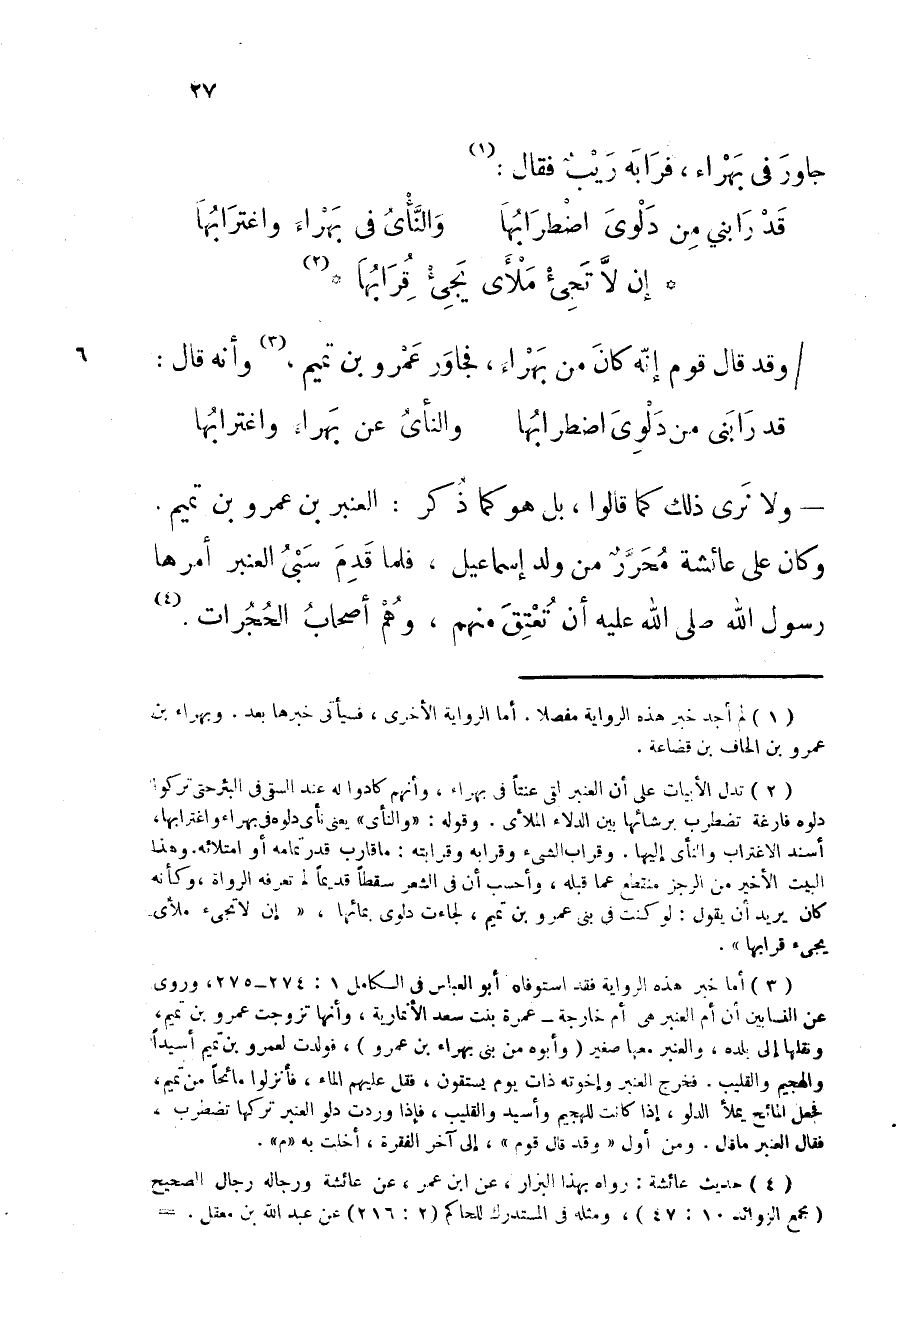 ٢٧
جاورَ فى بَهْراء ، فرَابَه رَيْبٌ فقال :(١)
قَدْ رَابني مِن دَلْوِىَ اضْطرابُهَا وَالنَّأْىُ فى بَهْرَاءَ واغترَابُهَا
* إن لاَّ تَجِئْ مَلْأَى يَجِئْ قُِرَابُهَا *(٢)
/ وقد قال قوم إنّه كانَ من بَهْرَاء ، فجاوَر عَمْرو بن تميم ،(٣) وأنه قال : ٦
قد رَابَنى من دَلْوِىَ اضطرابُها والنأىُ عن بَهراء واغترابُها
— ولا نَرى ذلك كما قالوا ، بل هو كما ذُكر : العنبر بن عمرو بن تميم .
وكان على عائشة مُحَرَّرٌ من ولد إسماعيل ، فلما قَدِمَ سَبْىُ العنبر أمرها
رسول الله صلى الله عليه أن تُعْتِقَ منهم ، وهُمْ أصحابُ الحُجُرات .(٤)
( ١ ) لم أجد خبر هذه الرواية مفصلا . أما الرواية الأخرى ، فسيأتى خبرها بعد . وبهراء بن
عمرو بن الحاف بن قضاعة .
( ٢ ) تدل الأبيات على أن العنبر لقى عنتاً فى بهراء ، وأنهم كادوا له عند السقى فى البئر حتى تركوا
دلوه فارغة تضطرب برشائها بين الدلاء الملأى . وقوله : «والنأى» يعنى نأى دلوه فى بهراء واغترابها،
أسند الاغتراب والنأى إليها . وقراب الشىء وقرابه وقرابته : ماقارب قدر تمامه أو امتلائه. وهذا
البيت الأخير من الرجز منقطع عما قبله ، وأحسب أن فى الشعر سقطاً قديماً لم تعرفه الرواة ، وكأنه
كان يريد أن يقول : لو كنت فى بنى عمرو بن تميم ، لجاءت دلوى بمائها ، « إن لا تجىء ملأى
يجىء قرابها » .
( ٣ ) أما خبر هذه الرواية فقد استوفاه أبو العباس فى الكامل ١ : ٢٧٤-٢٧٥، وروى
عن النسابين أن أم العنبر هى أم خارجة - عمرة بنت سعد الأنمارية ، وأنها تزوجت عمرو بن تميم،
ونقلها إلى بلده ، والعنبر معها صغير ( وأبوه من بنى بهراء بن عمرو ) ، فولدت لعمرو بن تميم أسيداً
والهجيم والقليب . فخرج العنبر وإخوته ذات يوم يستقون ، فقل عليهم الماء ، فأنزلوا مائحاً من تميم،
فجعل المائح يملأ الدلو ، إذا كانت للهجيم وأسيد والقليب ، فإذا وردت دلو العنبر تركها تضطرب ،
فقال العنبر ماقال . ومن أول « وقد قال قوم » ، إلى آخر الفقرة ، أخلت به «م» .
( ٤ ) حديث عائشة : رواه بهذا البزار ، عن ابن عمر ، عن عائشة ورجاله رجال الصحيح
( مجمع الزوائد ١٠ : ٤٧ ) ، ومثله فى المستدرك للحاكم (٢ : ٢١٦) عن عبد الله بن معقل . =